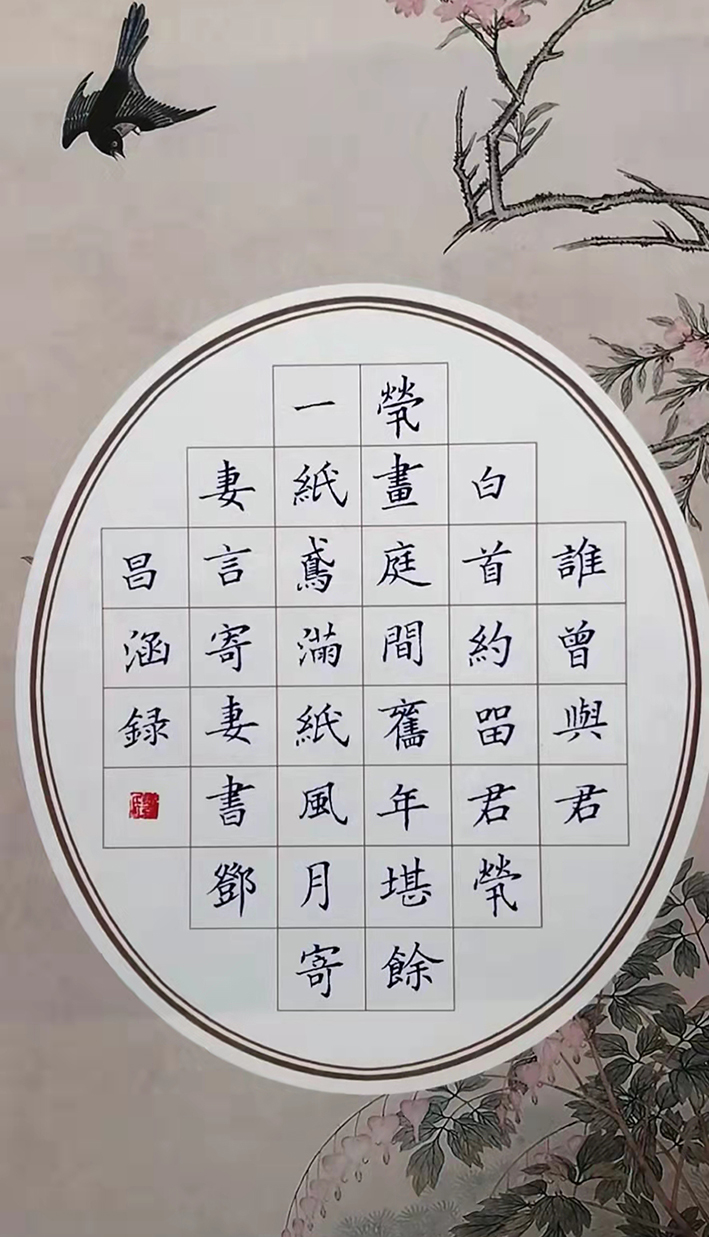 誰曾與君
白首約㽞君煢
煢畫庭間舊年堪餘
一紙鳶滿紙風月寄
妻言寄妻書鄧
昌涵録